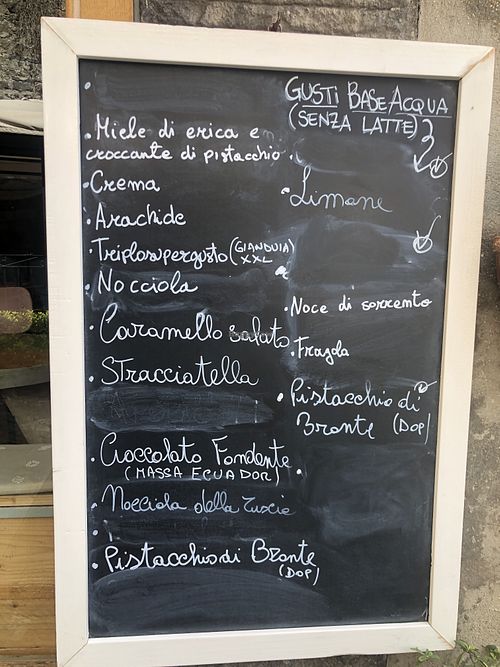 Miele di erica e
croccante di pistacchio
Crema
Arachide
Triplosupergusto (GIANDUIA XXL)
Nocciola
Caramello salato
Stracciatella
Cioccolato Fondente
(MASSA ECUADOR)
Nocciola della Tuscia
Pistacchio di Bronte
(DOP)
GUSTI BASE ACQUA
(SENZA LATTE)
Limone
Noce di sorrento
Fragola
Pistacchio di
Bronte (DOP)